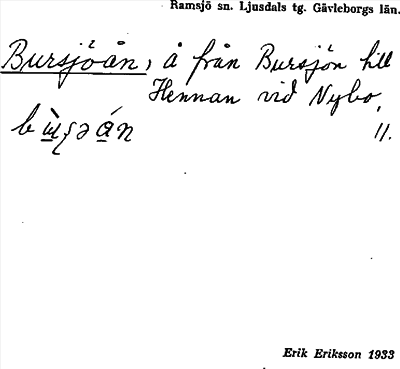 Ramsjö sn. Ljusdals tg. Gävleborgs län.
Bursjöån, å från Bursjön till
Hennan vid Nybo,
11.
Erik Eriksson 1933